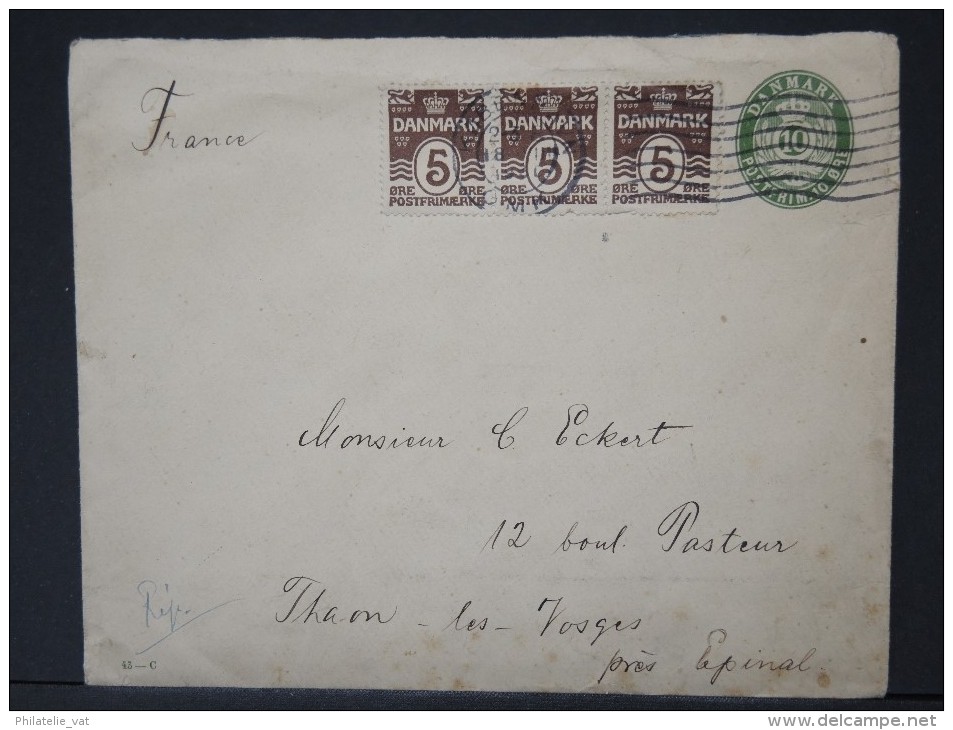 France
DANMARK
5
ØRE ØRE
POSTFRIMÆRKE
DANMARK
5
ØRE ØRE
POSTFRIMÆRKE
DANMARK
5
ØRE ØRE
POSTFRIMÆRKE
DANMARK
10
POSTFRIM. 10 ØRE
Monsieur C. Eckert
12 boul. Pasteur
Thaon-les-Vosges
près Epinal.
Rép.
43-C
Philatelie_vat
www.delcampe.net